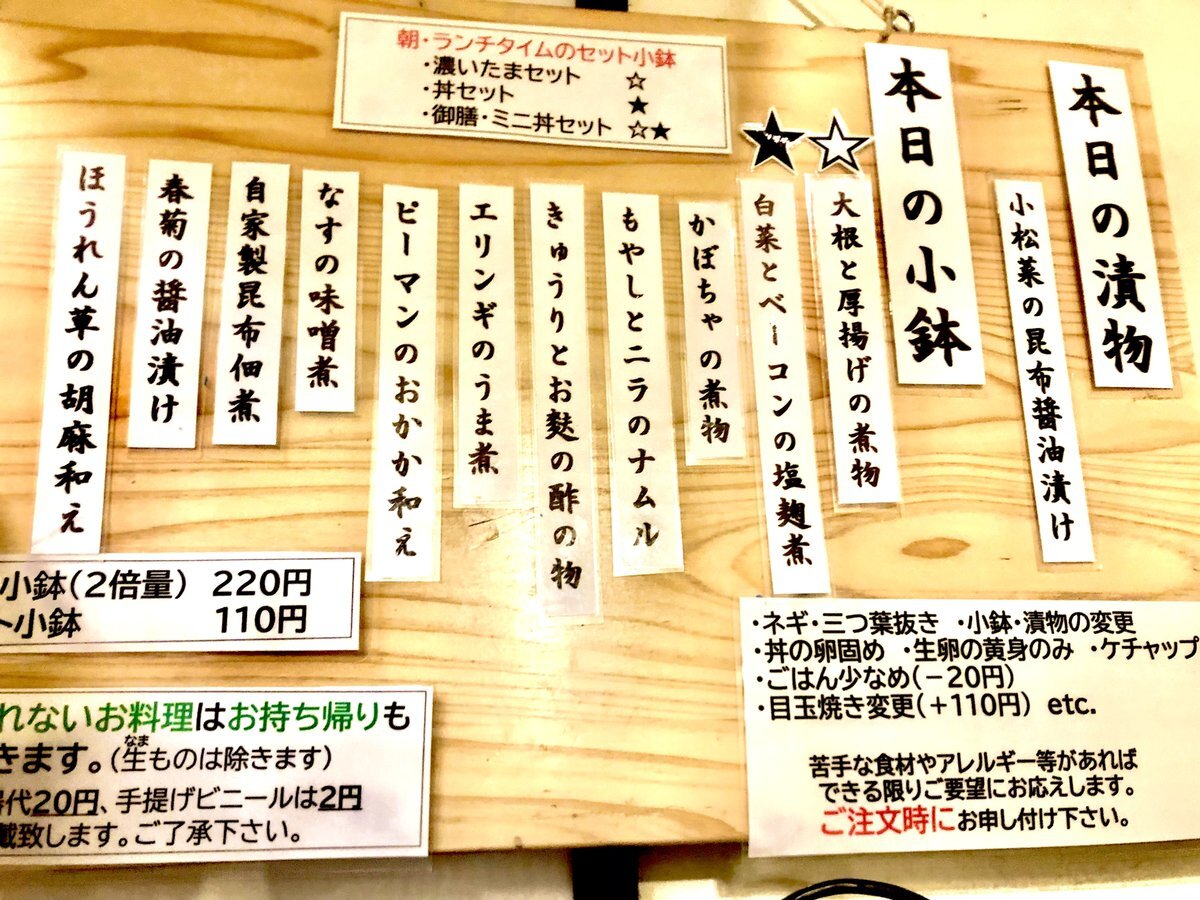 本日の漬物
小松菜の昆布醤油漬け
本日の小鉢
☆
大根と厚揚げの煮物
★
白菜とベーコンの塩麹煮
かぼちゃの煮物
もやしとニラのナムル
きゅうりとお麩の酢の物
エリンギのうま煮
ピーマンのおかか和え
なすの味噌煮
自家製昆布佃煮
春菊の醤油漬け
ほうれん草の胡麻和え
朝・ランチタイムのセット小鉢
・濃いたまセット ☆
・丼セット ★
・御膳・ミニ丼セット ☆★
小鉢(2倍量) 220円
ト小鉢 110円
れないお料理はお持ち帰りも
きます。(生ものは除きます)
なま
代20円、手提げビニールは2円
戴致します。ご了承下さい。
・ネギ・三つ葉抜き ・小鉢・漬物の変更
・丼の卵固め ・生卵の黄身のみ ・ケチャップ
・ごはん少なめ(－20円)
・目玉焼き変更(＋110円) etc.
苦手な食材やアレルギー等があれば
できる限りご要望にお応えします。
ご注文時にお申し付け下さい。